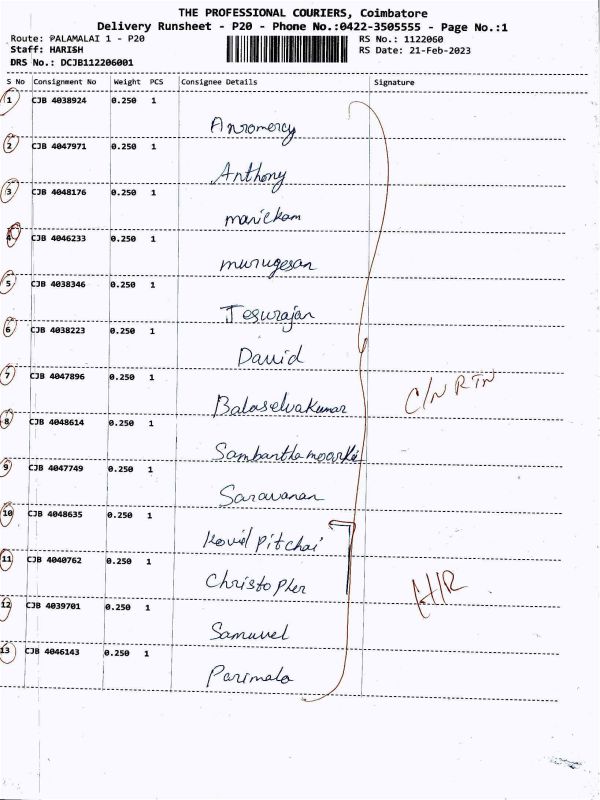 THE PROFESSIONAL COURIERS, Coimbatore
Delivery Runsheet - P20 - Phone No.:0422-3505555 - Page No.:1
Route: PALAMALAI 1 - P20 RS No.: 1122060
Staff: HARISH RS Date: 21-Feb-2023
DRS No.: DCJB112206001
S No Consignment No Weight PCS Consignee Details Signature
1 CJB 4038924 0.250 1
Anromercy
2 CJB 4047971 0.250 1
Anthony
3 CJB 4048176 0.250 1
manickam
4 CJB 4046233 0.250 1
murugesan
5 CJB 4038346 0.250 1
Jesurajan
6 CJB 4038223 0.250 1
David
7 CJB 4047896 0.250 1
C/N RTN
Balaselvakumar
8 CJB 4048614 0.250 1
9 CJB 4047749 0.250 1
Saravanan
10 CJB 4048635 0.250 1
Pitchai
11 CJB 4040762 0.250 1
Christopher
12 CJB 4039701 0.250 1
Samuvel
13 CJB 4046143 0.250 1
Parimala